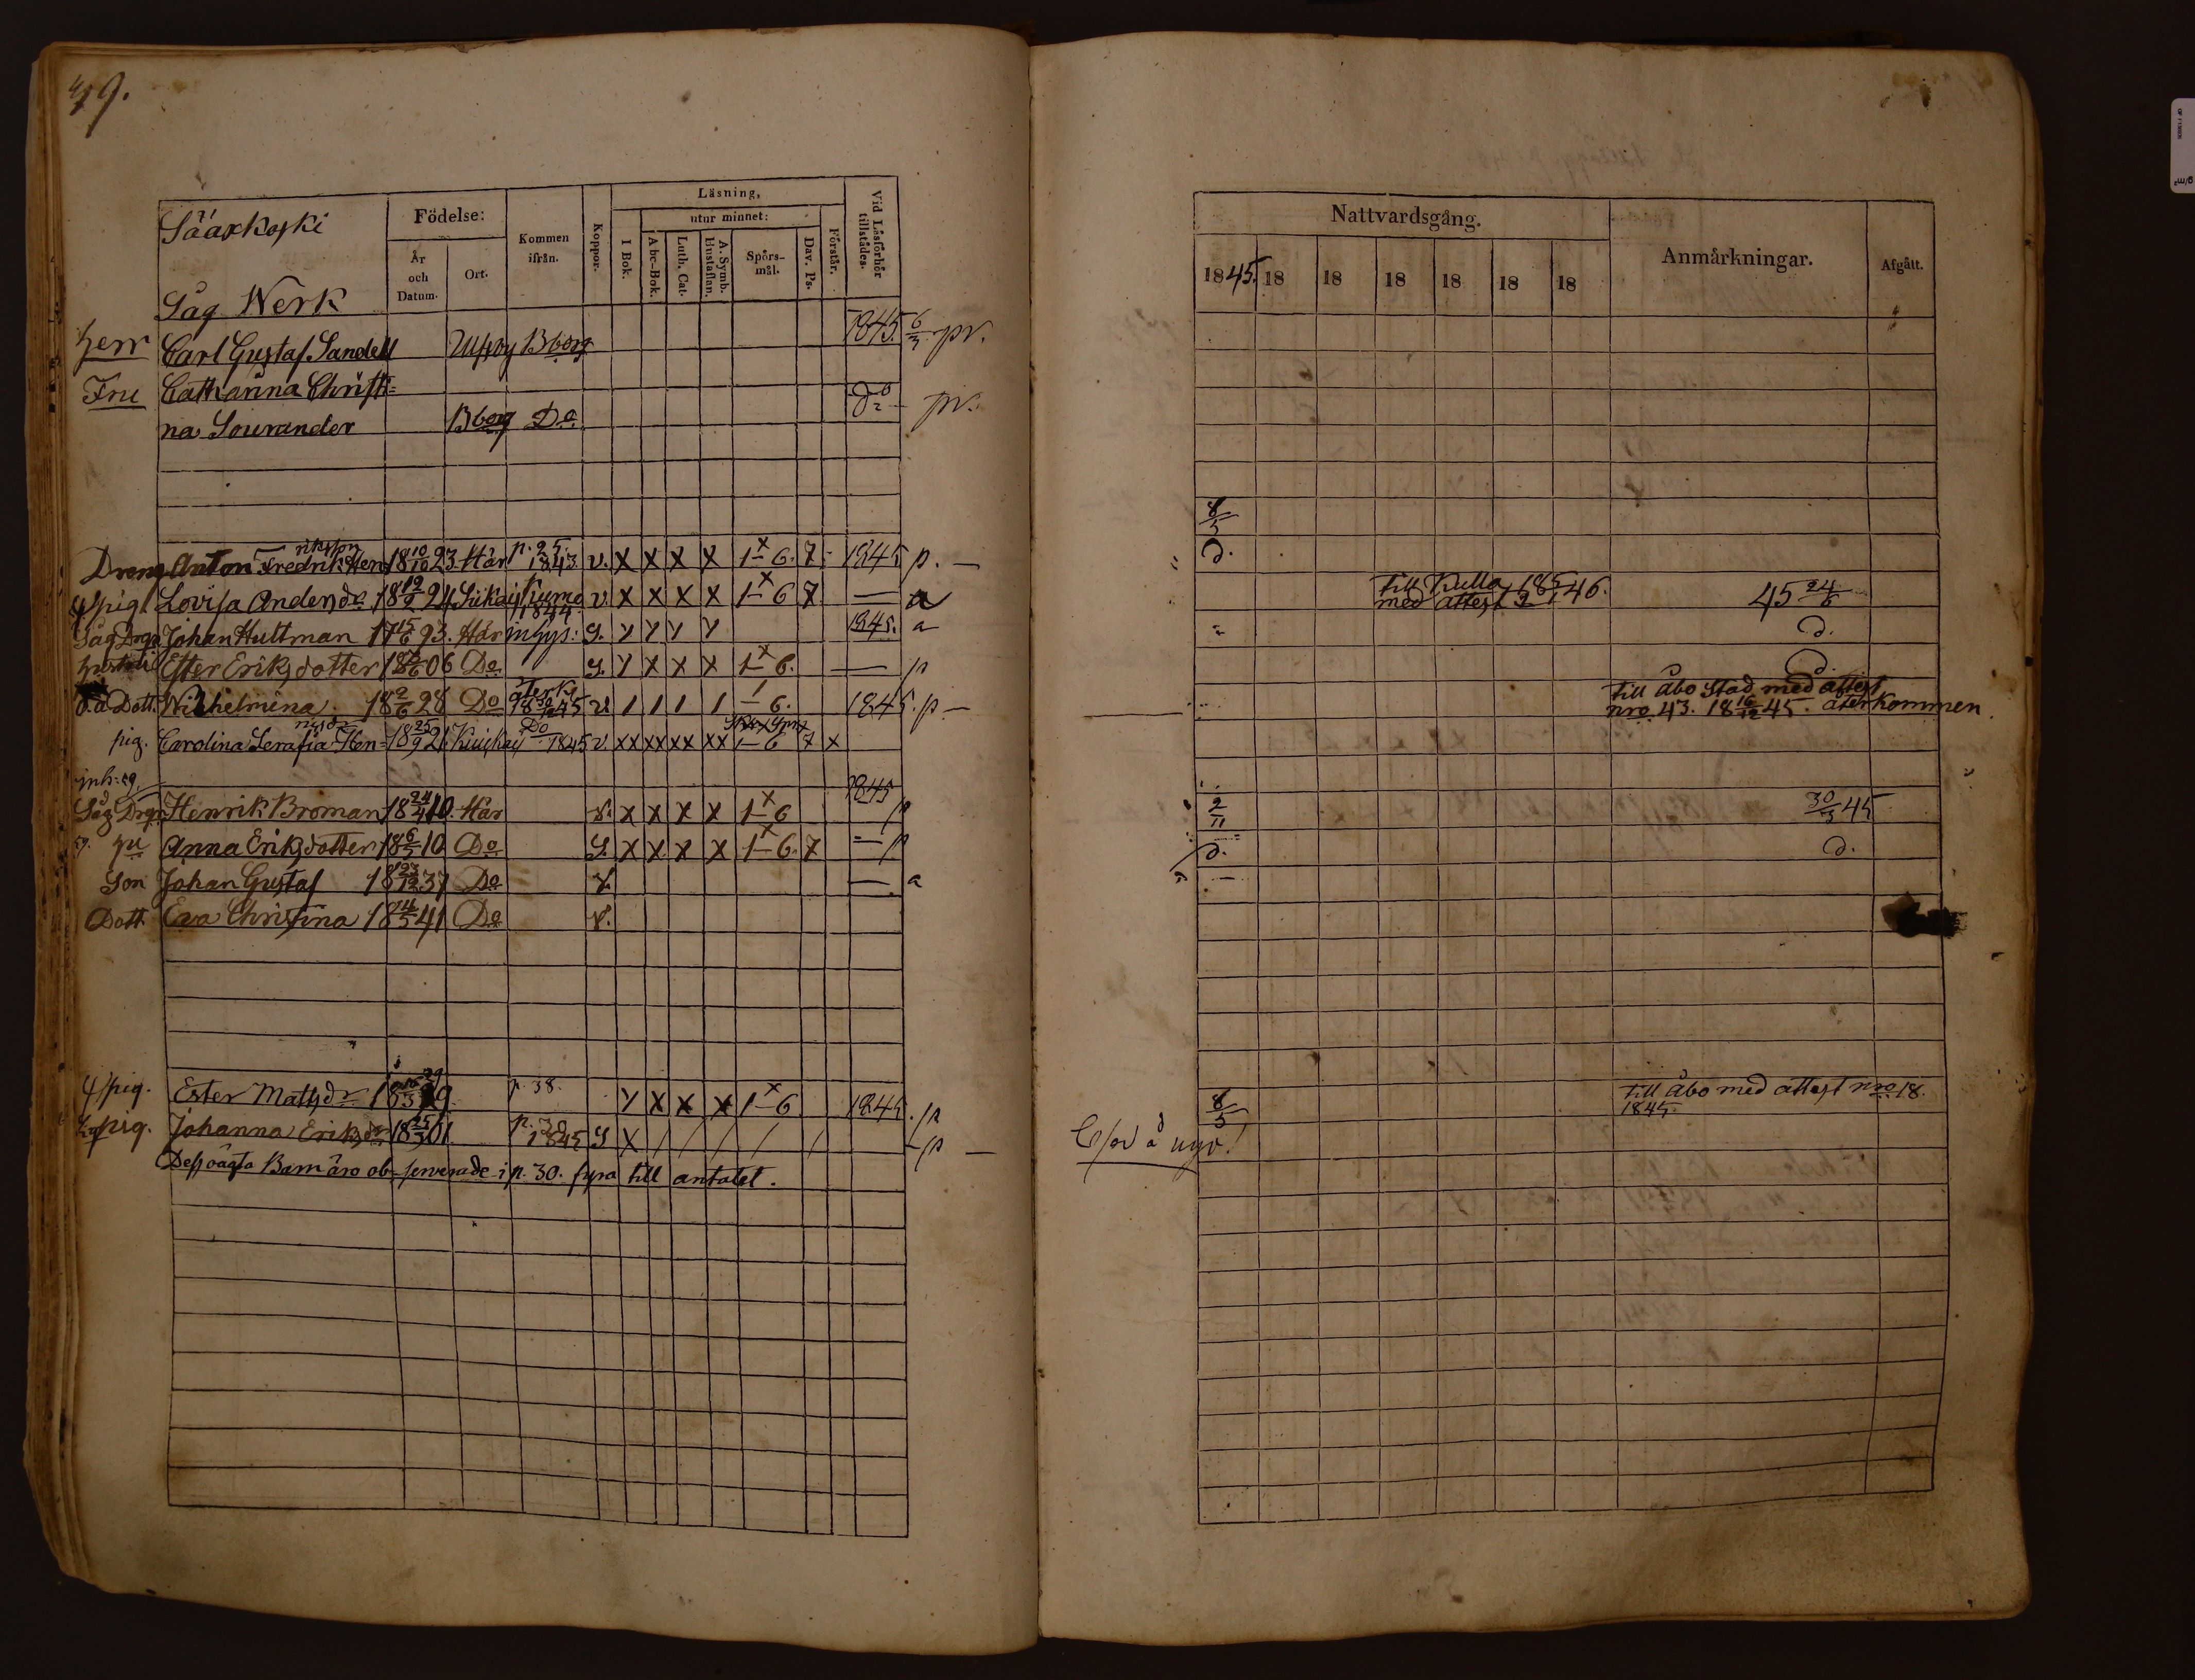 49.
Sääxkoski
Såg Werk
Födelse:
År och Datum.
Ort.
Kommen ifrån.
Koppor.
Läsning,
utur minnet:
I Bok.
Abc-Bok.
Luth. Cat.
A. Symb. Hustaflan.
Spörs-mål.
Dav. Ps.
Förstår.
Vid Läsförhör tillstädes.
Herr Carl Gustaf Sandell Bborg 1845 6/3 pr.
Fru Catharina Christi=
na Sourander Bborg Do do pr.
riksson
Dreng Anton Fredrik Hen 18 10/10 23. Här p. 25. 1843 v. X X X X 1-6. 7. 1845 p. —
pig. Lovisa Andersdr 18 19/2 24 Kumo 1844 v. X X X X 1-6 7 — a
Såg Drgn Johan Hultman 17 15/6 93. Här S. Y Y Y Y 1845. a
Hustru Ester Eriksdotter 06 Do S. Y X X X 1-6. — p
Dott. Wilhelmina 18 2/6 28 Do återk. 45 v. 1 1 1 1 1-6. 1845. p —
pig. Carolina Serafia Hen= 18 25/9 21 Do 1845 v xx xx xx xx 1-6 7 x
inh: sg.
Såg Drgn Henrik Broman 18 24/4 10. Här v. X X X X 1-6 1845 p
hu Anna Eriksdotter 18 6/5 10 Do S. X X X X 1-6. 7 — p
Son Johan Gustaf 18 23/12 37 Do v. — a
Dott. Eva Christina 41 Do v.
pig. Ester Mattsdr p. 38. Y X X X 1-6 1845. p
pig. Johanna Eriksdr 18 25/5 01 p. 30 1845 S X / / / / / — p —
Dess oägta Barn äro ob- serverade i p. 30. fyra till antalet.
Nattvardsgång.
Anmärkningar.
Afgått.
1845. 18 18 18 18 18 18
8/5
d.
till Kulla
med attest 46. 45 24/6
d.
d.
till Åbo Stad med attest
nro 43. 18 16/12 45. återkommen
2/11 30/3 45
d. d.
8/5 till Åbo med attest nro 18.
1845.
å nyo!